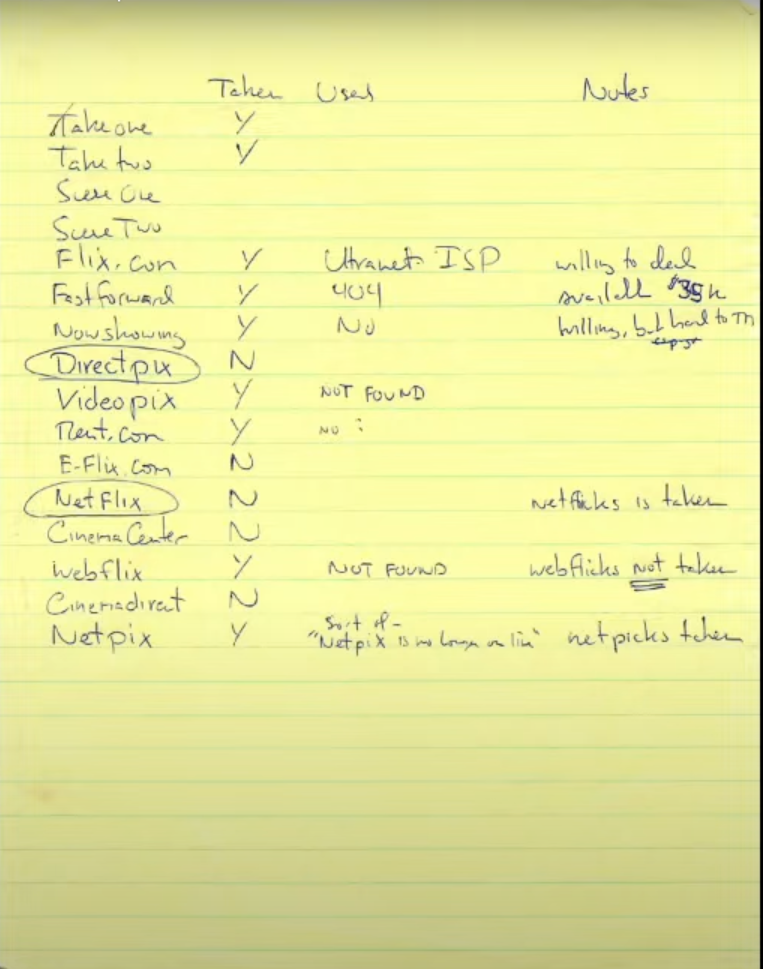 Taken Used Notes
Takeone Y
Take two Y
Scene One
Scene Two
Flix.com Y Ultranet ISP willing to deal
Fastforward Y 404 available $35k
Nowshowing Y No willing, but hard to TM
Directpix N
Videopix Y NOT FOUND
Rent.com Y NO
E-Flix.com N
NetFlix N netflicks is taken
CinemaCenter N
Webflix Y NOT FOUND webflicks not taken
Cinemadirect N
Sort of -
Netpix Y "Netpix is no longer on line" netpicks taken